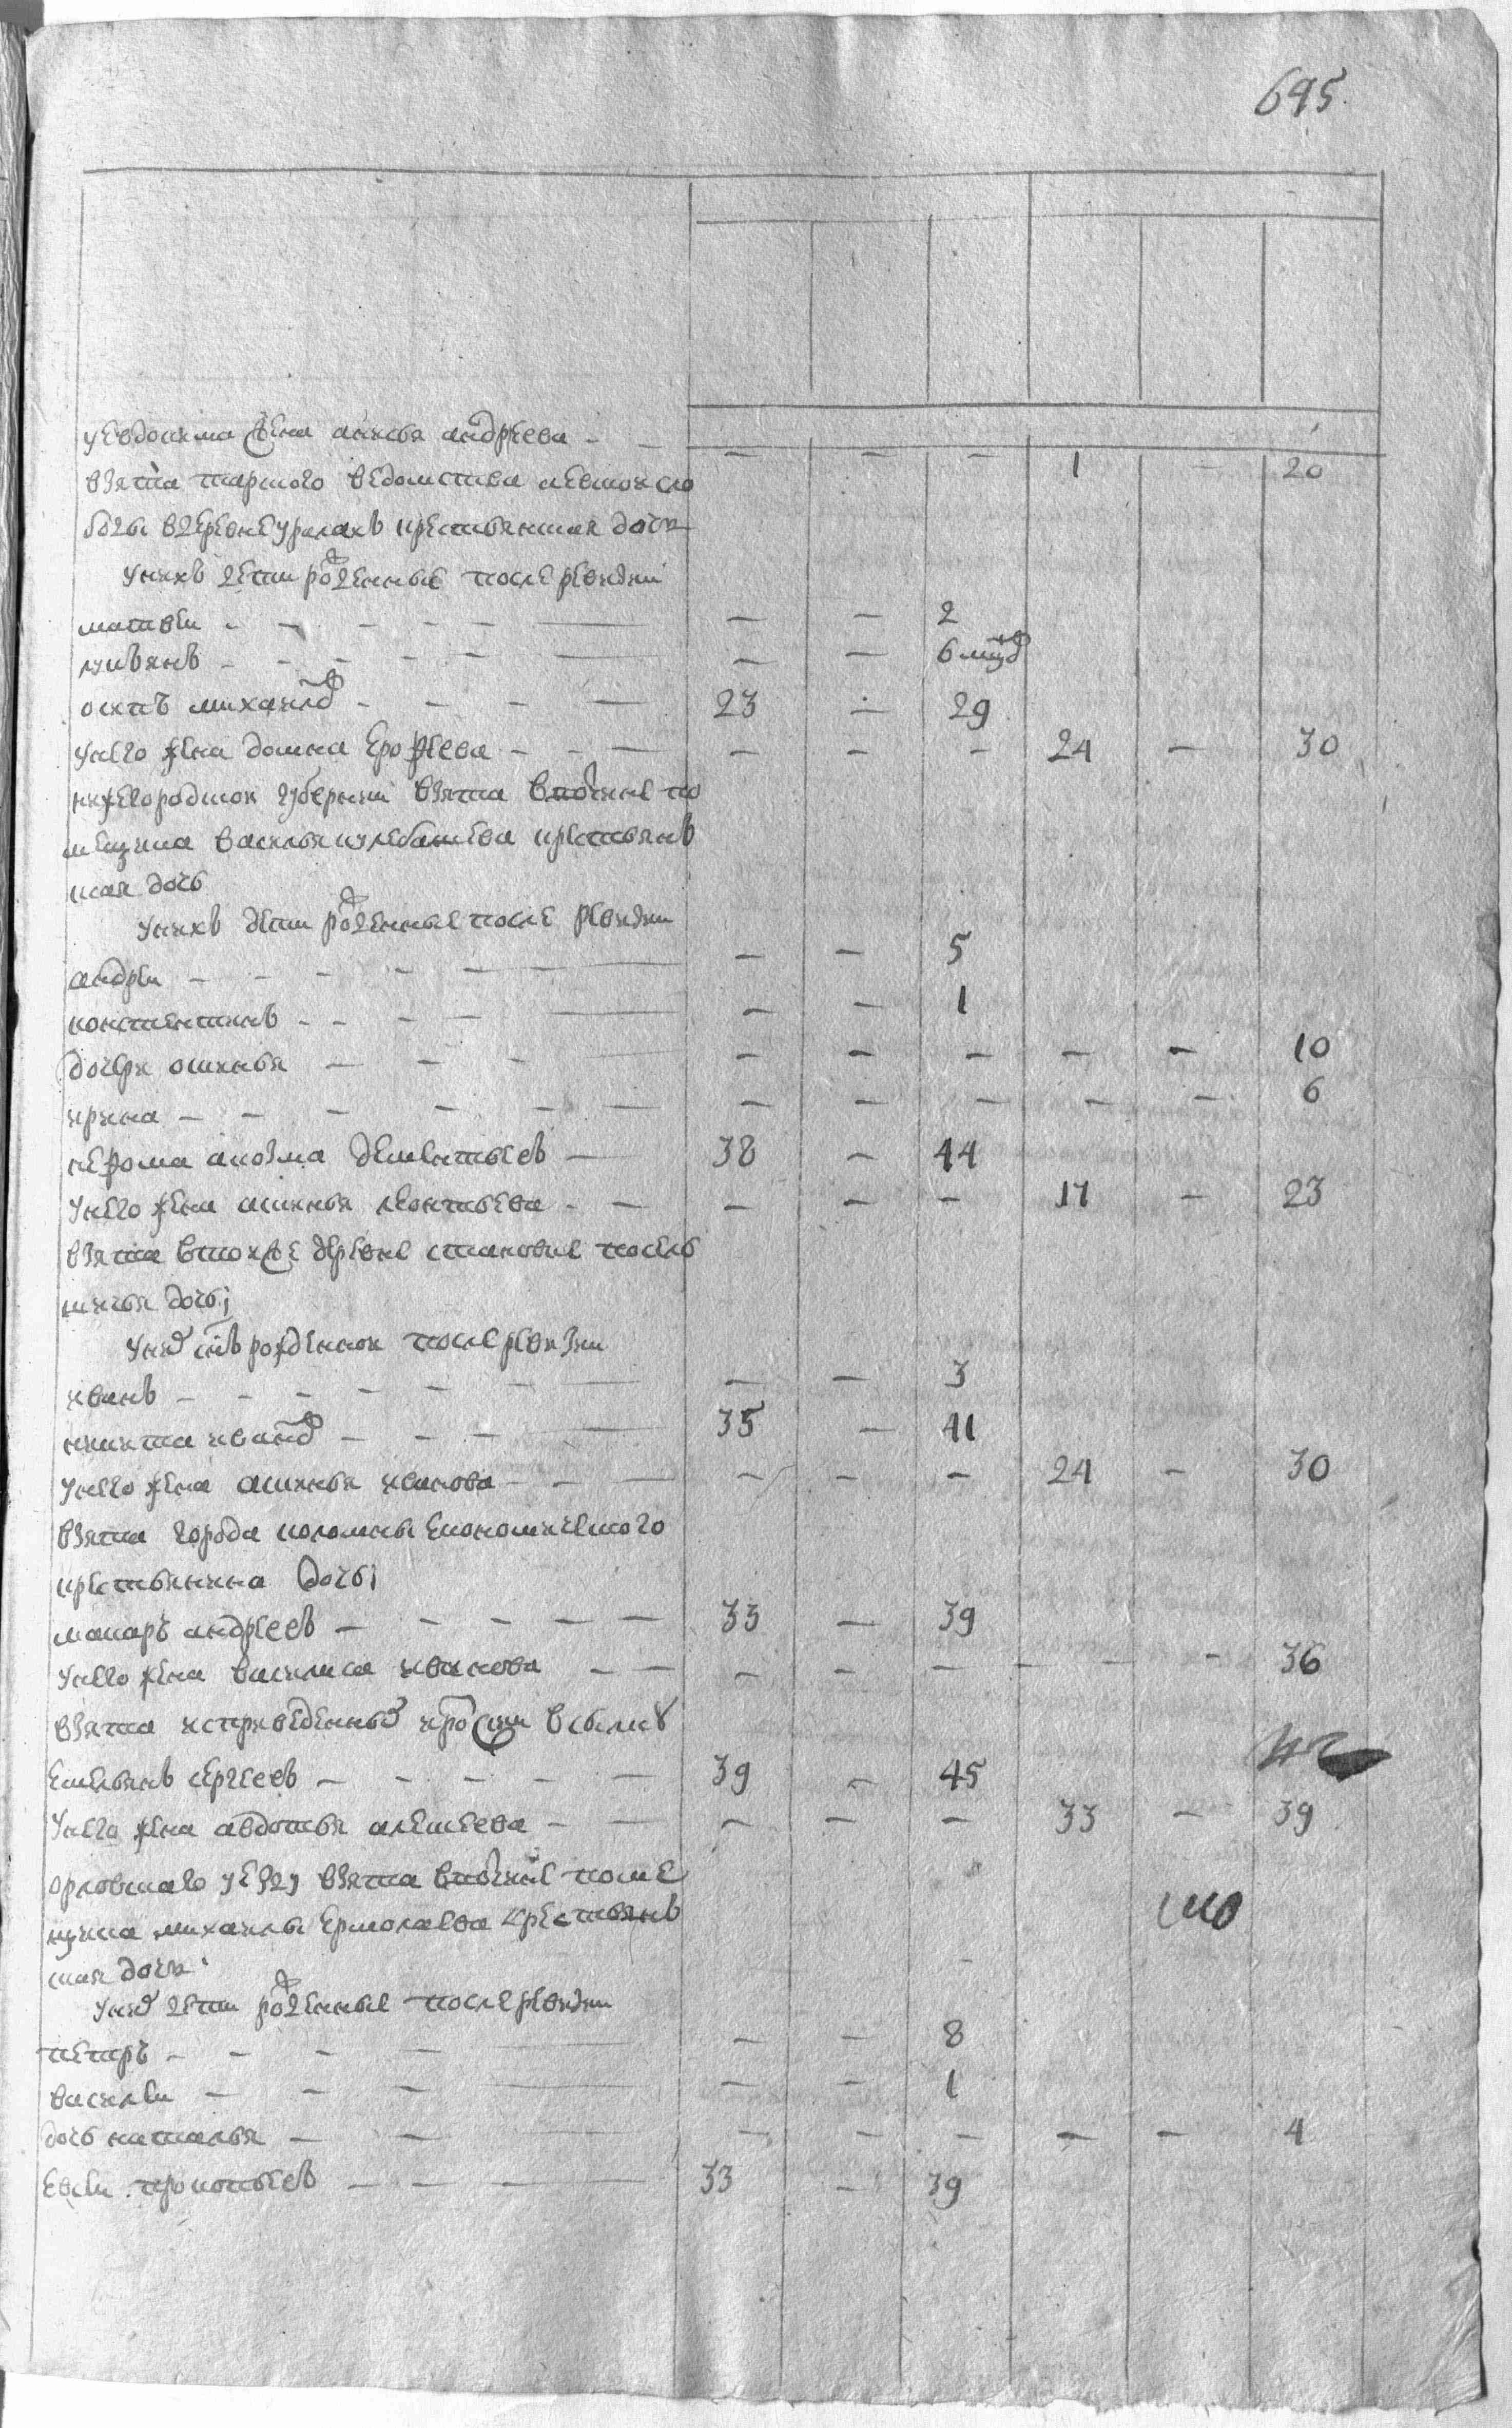 695
у евдокима жена анисья андреева - - - - - 1 - 20
взята тарского ведомства сло
боды в деревне крестьянская дочь
у них дети рожденныя после ревизии
матвеи - - - - - - - - 2
- - - - - - - - 6 мцов
осипъ михаилов - - - - 23 - 29
у него жена домна ерофеева - - - - - - 24 - 30
нижегородской губернии взята в вотчине по
мещика василья крестьянъ
ская дочь
у них дети рожденные после ревизии
андреи - - - - - - - - - 5
константинъ - - - - - - - 1
дочери аксинья - - - - - - - - - - 10
ирина - - - - - - - - - - - 6
дементьевъ - 38 - 44
у него жена аксинья леонтьева - - - - - 17 - 23
взята в той же деревне посель
щичья дочь
у них сынъ рожденной после ревизии
иванъ - - - - - - - - - 3
никита иванов - - - - 35 - 41
у него жена аксинья иванова - - - - - - 24 - 30
взята города коломны економического
крестьянина дочь
макаръ андреевъ - - - - - 33 - 39
у него жена василиса иванова - - - - - - - 36
взята из приведенных из росии в ссылку
емельянъ сергеевъ - - - - - 39 - 45
у него жена авдотья алексеева - - - - - 33 - 39
орловскаго уезду взята в вотчине поме
щика михаилы ермолаева крестьянъ
ская дочь
у них дети рожденные после ревизии
петръ - - - - - - - 8
василеи - - - - - - 1
дочь наталья - - - - - - - - 4
евсеи прокопьевъ - - - - 33 - 39